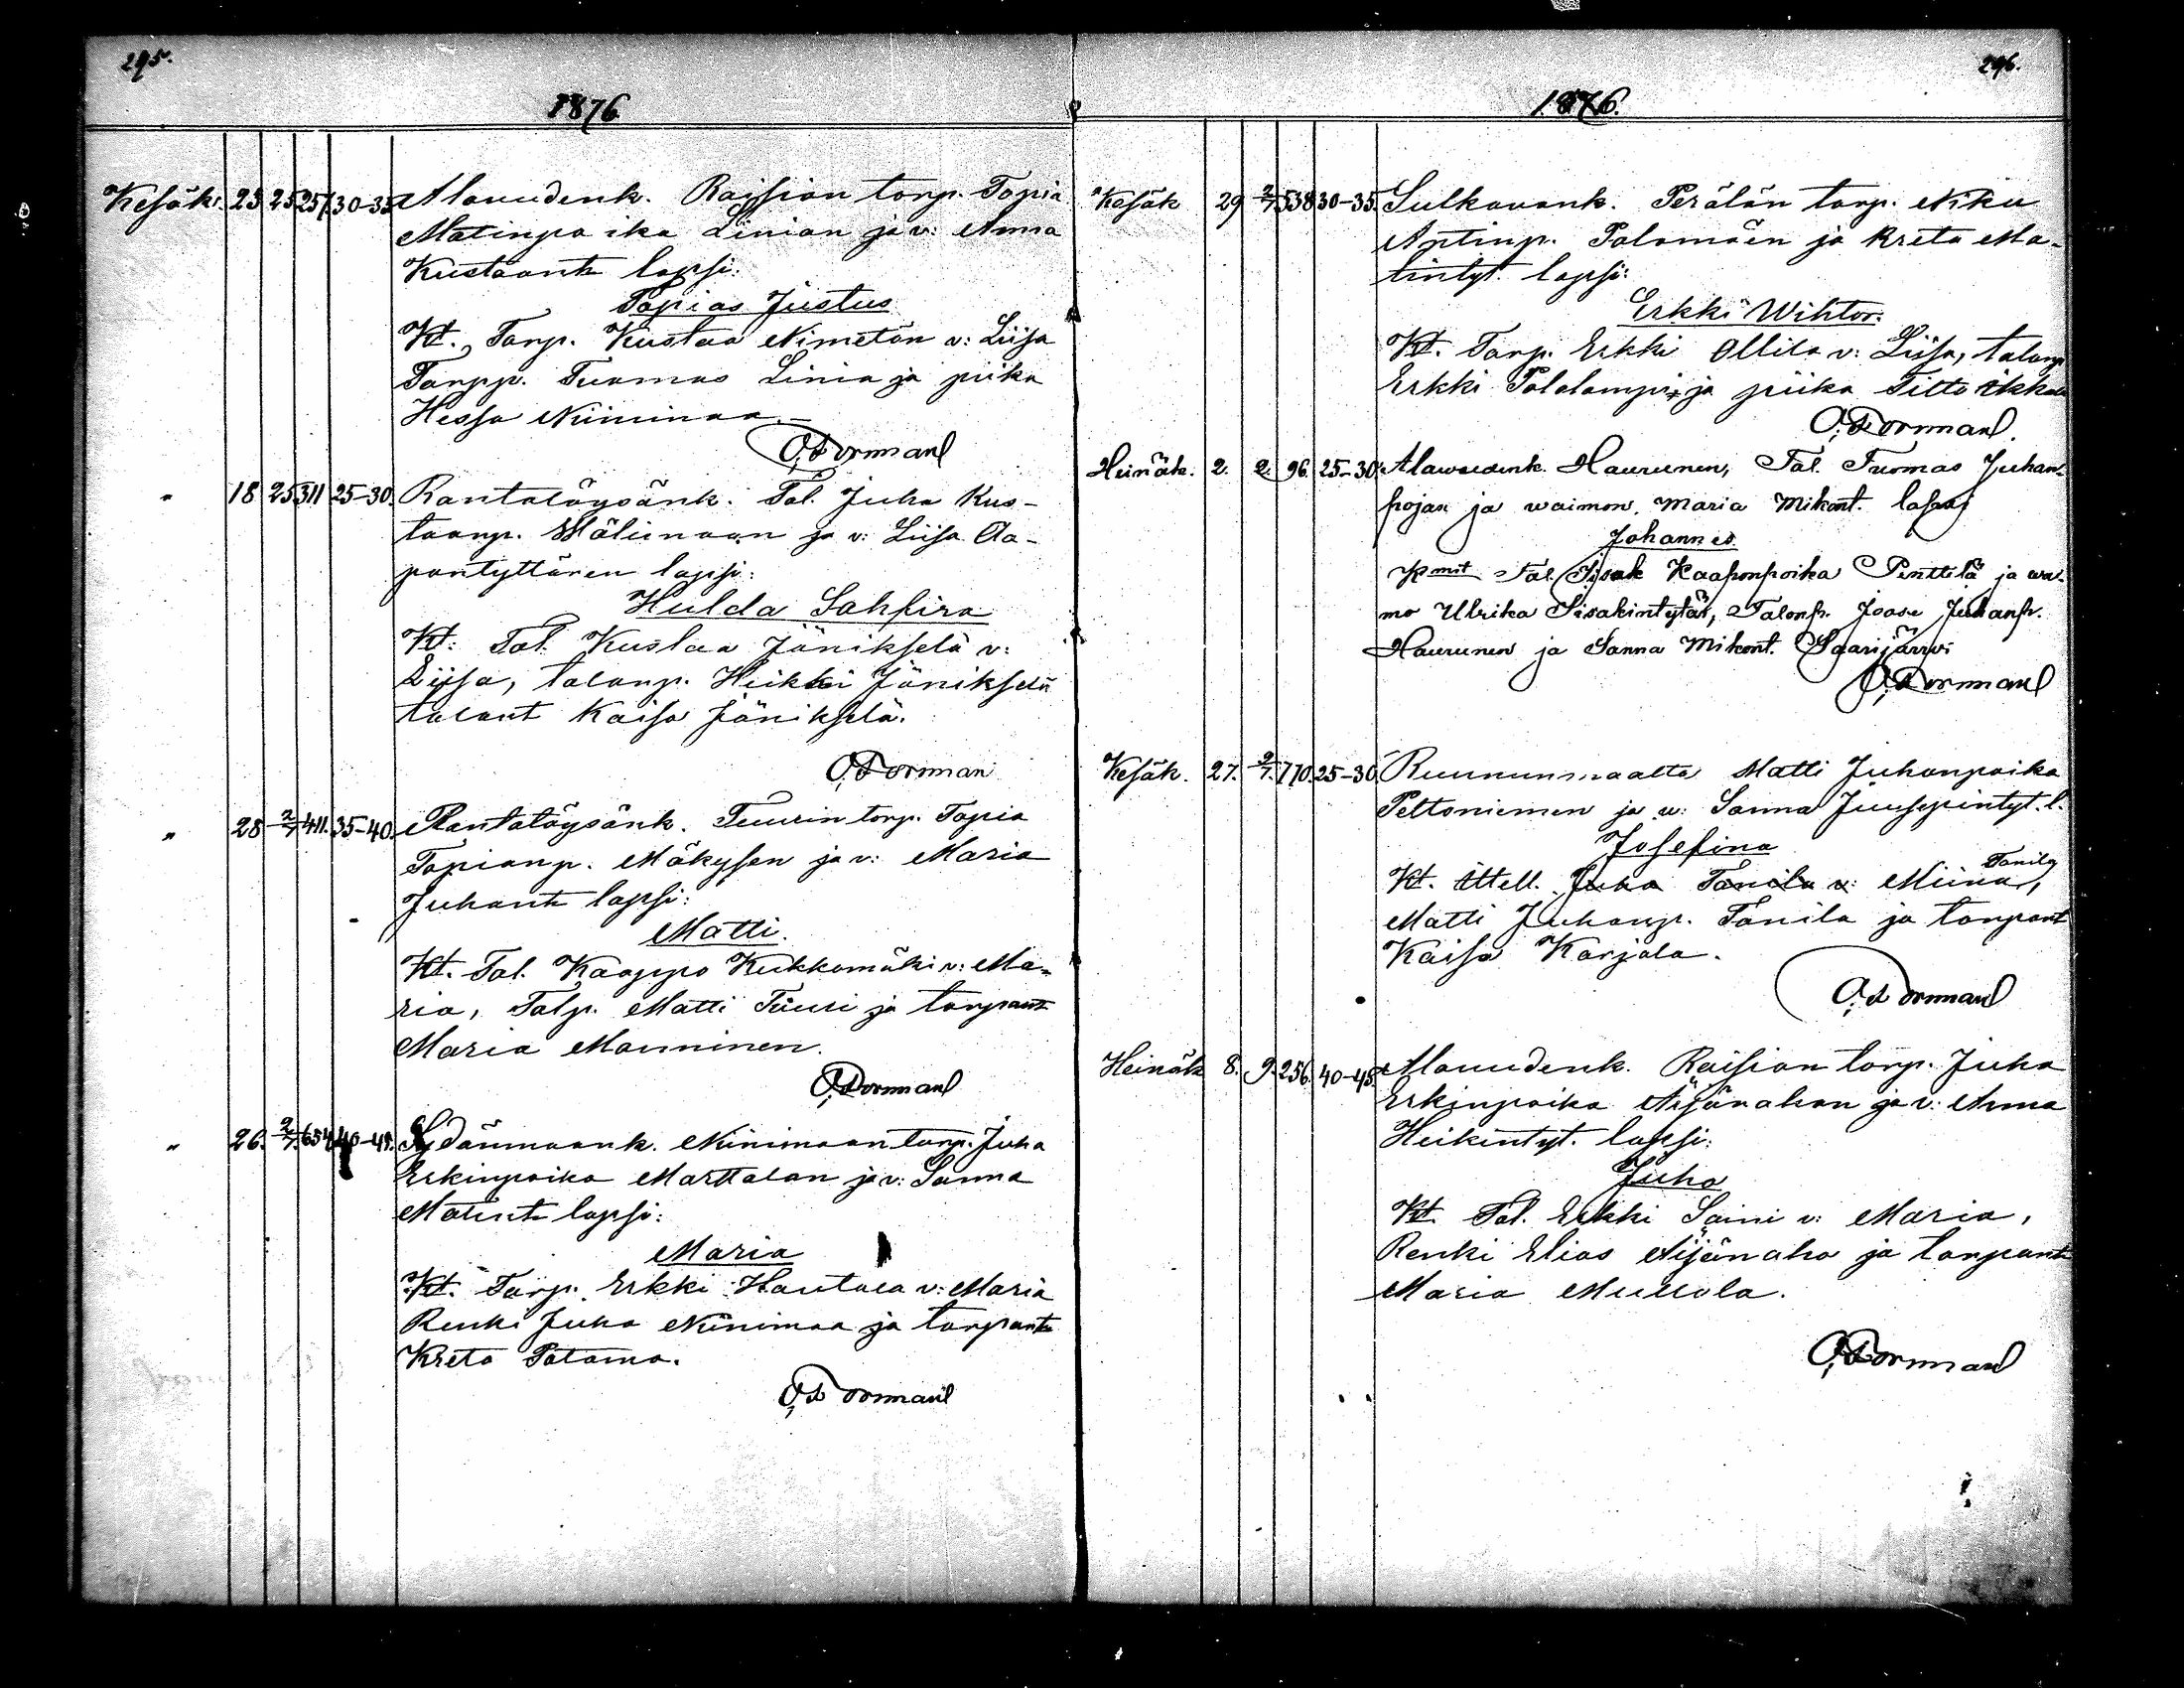 295.
1876
Kesäk. 23 25 257 30-35 Alavudenk. Raisian torp. Topia
Matinpoika Linian ja v: Anna
Kustaant lapsi:
Topias Justus
Kt. Torp. Kustaa Nimetön v: Liisa
Torpp. Tuomas Linia ja piika
Hessa Niinimaa
O. Dormanl
" 18 25 311 25-30. Rantatöysänk. Tal. Juha Kus-
taanp. Mälinoan ja v: Liisa Aa-
pontyttären lapsi:
Hulda Sahfira
Kt: Tal. Kustaa Jänikselä v:
Liisa, talonp. Heikki Jänikselä
talont Kaisa Jänikselä.
O. Dorman
" 28 2/7 411. 35-40. Rantatöysänk. Tuurin torp. Topia
Topianp. Mäkysen ja v: Maria
Juhant lapsi:
Matti.
Kt. Tal. Kaappo Kukkomäki v: Ma-
ria, Talp. Matti Tuuri ja torpant
Maria Manninen.
O. Dormanl
" 26. 2/7. 654 40-45. Sydänmaank. Niinimaan torp. Juha
Erkinpoika Marttalan ja v: Sanna
Matint lapsi:
Maria
Kt. Torp. Erkki Hautala v: Maria
Renki Juha Niinimaa ja torpant
Kreta Patama.
O. Dormanl
296.
1876.
Kesäk 29 2/7 538 30-35. Sulkavank. Perälän torp. Niku
Antinp. Palomäen ja Kreta Ma-
tintyt. lapsi:
Erkki Wihtor.
Kt. Torp. Erkki Ollila v: Liisa, talonp
Erkki Palolampi ja piika Titto
O. Dormanl.
Heinäk. 2. 2. 96. 25-30. Alawudenk. Haurunen, Tal. Tuomas Juhan-
pojan ja waimon Maria Mikont. lapsi
Johannes.
Kmit Tal. Iisak Kaaponpoika Penttilä ja wa-
mo Ulrika Iisakintytär, Talonp. Joose Juhanp.
Haurunen ja Sanna Mikont. Saarijärwi
O. Dormanl
Kesäk. 27. 2/7. 770. 25-30 Ruununmaalta Matti Juhanpoika
Peltoniemen ja v: Sanna Juusepintyt. l.
Josefina
Tanila
Kt. Ittell. Juha Tanila v: Miina,
Matti Juhanp. Tanila ja torpant
Kaisa Karjala.
O. Dormanl
Heinäk 8. 9. 256. 40-45. Alavudenk. Raisian torp. Juha
Erkinpoika Äijänahon ja v: Anna
Heikintyt. lapsi:
Juha
Kt. Tal. Erkki Saini v: Maria,
Renki Elias Äijänaho ja torpant
Maria Mullola.
O. Dormanl